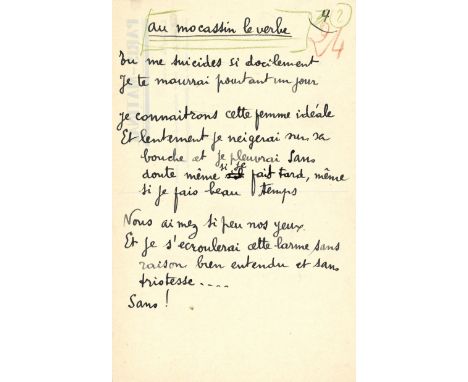 4 2
24
au mocassin le verbe
Tu me suicides si docilement
Je te mourrai pourtant un jour
Je connaîtrons cette femme idéale
Et lentement je neigerai sur sa
bouche et je pleuvrai Sans
doute même si je fais tard, même
si je fais beau temps
Nous aimez si peu nos yeux
Et je s'écroulerai cette larme sans
raison bien entendu et sans
tristesse....
Sans !